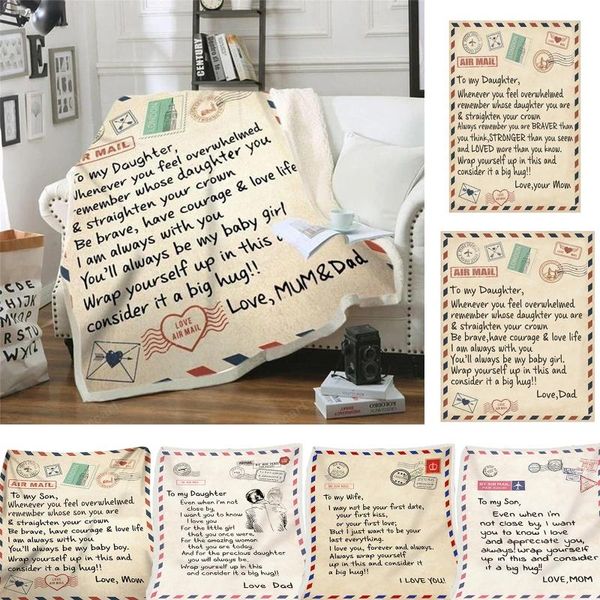 CENTURY
AIR MAIL
To my Daughter,
Whenever you feel overwhelmed
remember whose daughter you
& straighten your crown
Be brave, have courage & love life
I am always with you
You'll always be my baby girl
Wrap yourself up in this
consider it a big hug!!
Love, MUM&Dad
LOVE
AIR MAIL
AIR MAIL
To my Daughter,
Whenever you feel overwhelmed
remember whose daughter you are
& straighten your crown
Always remember you are BRAVER than
you think,STRONGER than you seem
and LOVED more than you know.
Wrap yourself up in this and
consider it a big hug!!
Love,your Mom
AIR MAIL
To my Daughter,
Whenever you feel overwhelmed
remember whose daughter you are
& straighten your crown
Be brave,have courage & love life
I am always with you.
You'll always be my baby girl.
Wrap yourself up in this and
consider it a big hug!!
Love,Dad
AIR MAIL
To my Son,
Whenever you feel overwhelmed
remember whose son you are
& straighten your crown
Be brave, have courage & love life
I am always with you
You'll always be my baby boy.
Wrap yourself up in this and
consider it a big hug!!
Love, Mom
To my Daughter
Even when I'm not
close by,
I want you to know
I love you
For the little girl
that you once were,
for the amazing woman
that you are today,
And for the precious daughter
you will always be
Wrap yourself up in this
and consider it a big hug
Love Dad
To my Wife,
I may not be your first date,
your first kiss,
or your first love;
But I just want to be your
last everything.
I love you, forever and always.
Always wrap yourself
up in this and consider it
a big hug!
I LOVE YOU!
To my Son,
Even when I'm not
close by, I want
you to know I love
and appreciate you,
always! wrap yourself
up in this and consider
it a big hug!!
Love, MOM